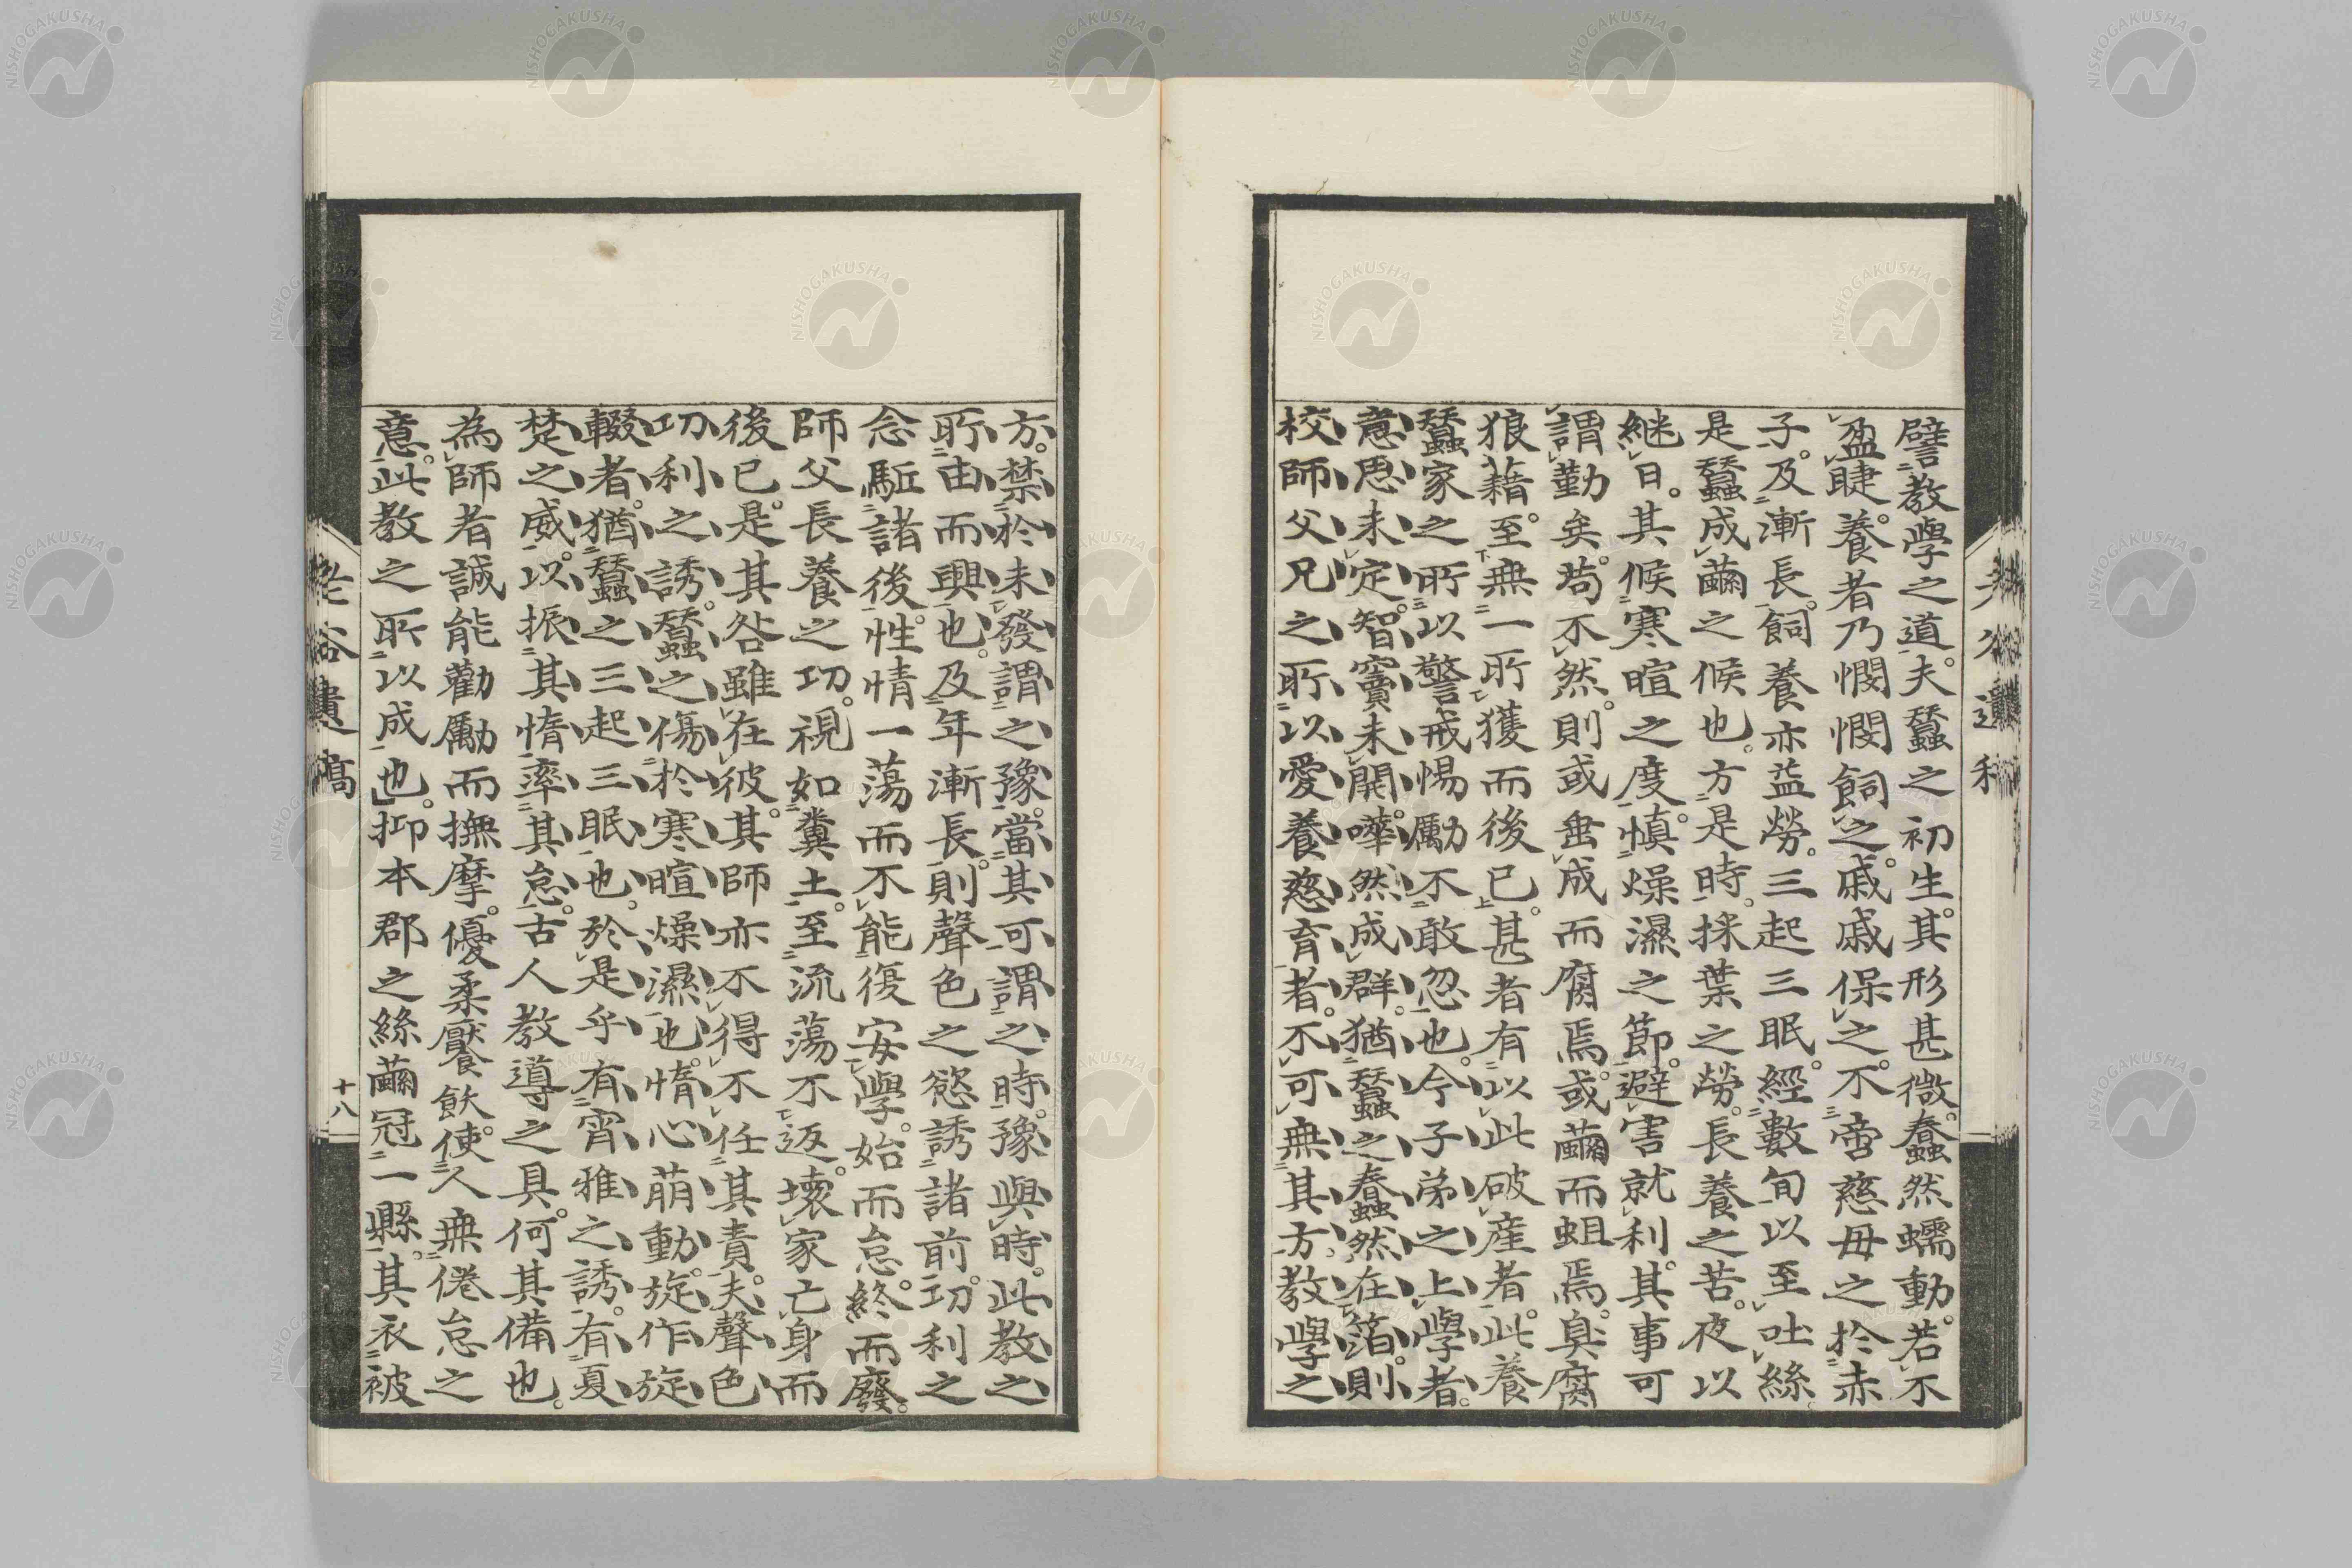 譬教學之道。夫蠶之初生。其形甚微。蠢然蠕動。若不
盈睫。養者乃憫憫飼之。戚戚保之。不啻慈母之於赤
子。及漸長。飼養亦益勞。三起三眠。經數旬以至吐絲。
是蠶成繭之候也。方是時。採葉之勞。長養之苦。夜以
継日。其候寒暄之度。慎燥濕之節。避害就利。其事可
謂勤矣。苟不然。則或垂成而腐焉。或繭而蛆焉。臭腐
狼藉。至無一所獲而後已。甚者有以此破産者。此養
蠶家之所以警戒惕勵不敢忽也。今子弟之上學者。
意思未定。智竇未開。嘩然成群。猶蠶之蠢然在箔。則
校師父兄之所以愛養慈育者。不可無其方。教學之
方。禁於未發謂之豫。當其可謂之時。豫與時。此教之
所由而興也。及年漸長。則聲色之慾誘諸前。功利之
念駈諸後。性情一蕩而不能復安學。始而怠。終而廢。
師父長養之功。視如糞土。至流蕩不返。壊家亡身而
後已。是其咎雖在彼。其師亦不得不任其責。夫聲色
功利之誘。蠶之傷於寒暄燥濕也。惰心萠動。旋作旋
輟者。猶蠶之三起三眠也。於是乎有宵雅之誘。有夏
楚之威。以振其惰。率其怠。古人教導之具。何其備也。
為師者誠能勸勵而撫摩。優柔饜飫。使人無倦怠之
意。此教之所以成也。」抑本郡之絲繭冠一縣。其衣被
十八